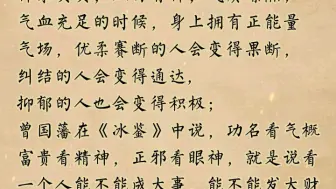 气血充足的时候，身上拥有正能量
气场，优柔赛断的人会变得果断，
纠结的人会变得通达，
抑郁的人也会变得积极；
曾国藩在《冰鉴》中说，功名看气概
富贵看精神，正邪看眼神，就是说看
一个人能不能成大事，能不能发大财